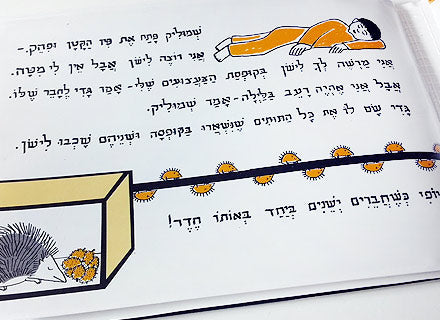 שְׁמוּלִיק פָּתַח אֶת פִּיו הַקָּטָן וּפִהֵק.–
אֲנִי רוֹצֶה לִישֹׁן אֲבָל אֵין לִי מִטָּה.
אֲנִי מַרְשֶׁה לְךָ לִישֹׁן בְּקוּפְסַת הַצַּעֲצוּעִים שֶׁלִּי– אָמַר גָּדִי לַחֲבֵר שֶׁלּוֹ.
אֲבָל אֲנִי אֶהְיֶה רָעֵב בַּלַּיְלָה–אָמַר שְׁמוּלִיק.
גָּדִי שָׂם לוֹ אֶת כָּל הַתּוּתִים שֶׁנִּשְׁאֲרוּ בַּקּוּפְסָה וּשְׁנֵיהֶם שָׁכְבוּ לִישֹׁן.
כְּשֶׁחֲבֵרִים יְשֵׁנִים בְּיַחַד בְּאוֹתוֹ חֶדֶר!